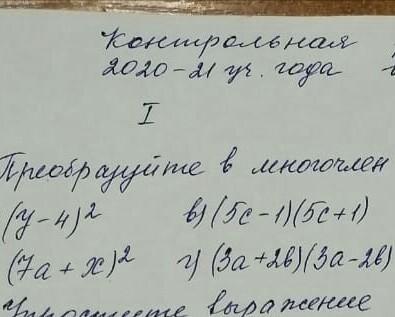 Контрольная
2020-21 уч. года
I
Преобразуйте в многочлен
(y-4)² в) (5c-1)(5c+1)
(7a+x)² г) (3a+2в)(3a-2в)
Упростите выражение